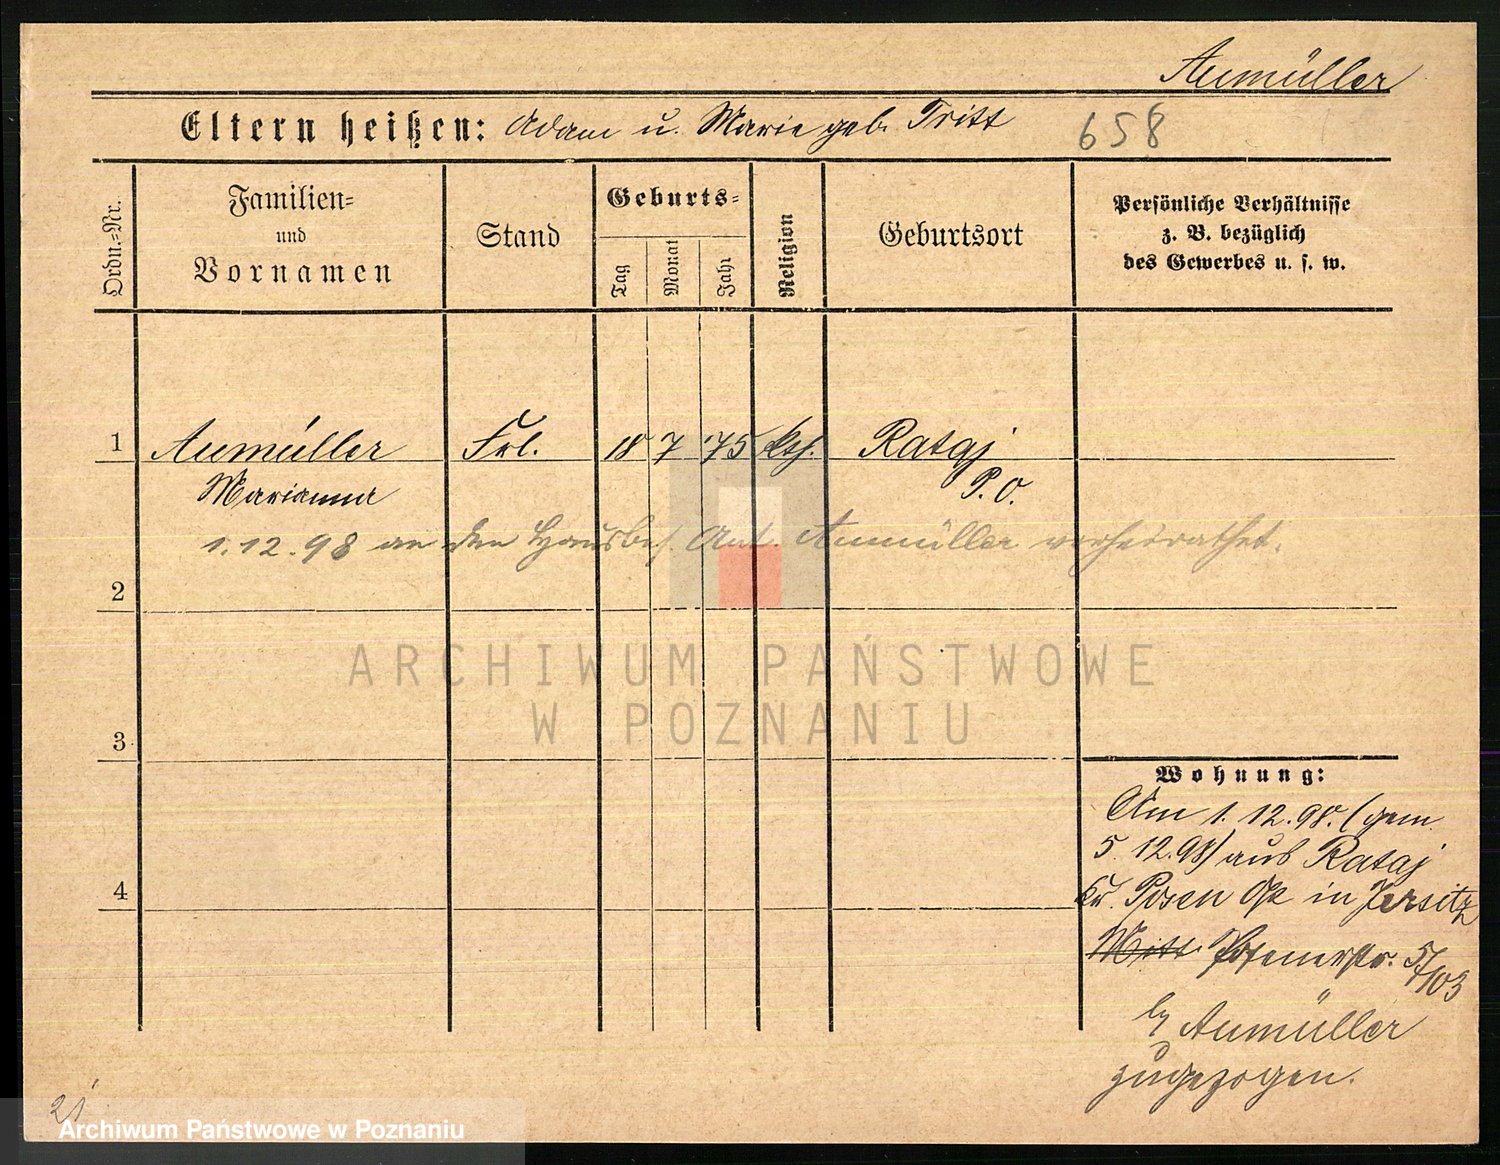 Aumüller
Eltern heißen: Adam u. Marie geb. Tritt 658
Ordn.-Nr.
Familien-
und
Vornamen
Stand
Geburts-
Tag
Monat
Jahr
Religion
Geburtsort
Persönliche Verhältnisse
z. B. bezüglich
des Gewerbes u. s. w.
1 Aumüller Frl. 18 7 75 kth. Rataj
Marianna P. O.
1.12.98 an den Hausbes. Ant. Aumüller verheirathet.
2
ARCHIWUM PAŃSTWOWE
W POZNANIU
3
Wohnung:
Am 1.12.98. (gem.
5.12.98) aus Rataj
4
Kr. Posen Ost in Jersitz
Mitt Posenerstr. 57/103
by Aumüller
zugezogen.
21
Archiwum Państwowe w Poznaniu